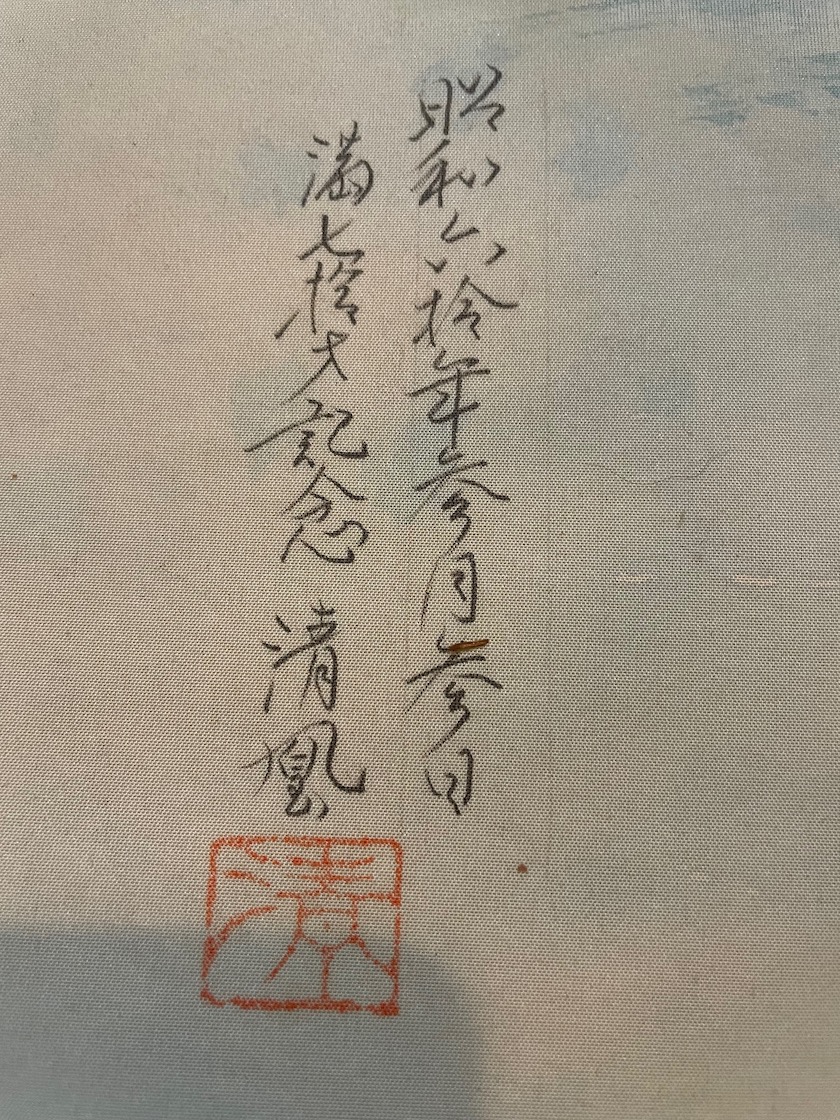 昭和六拾年参月参日
満七拾才記念 清凰
清